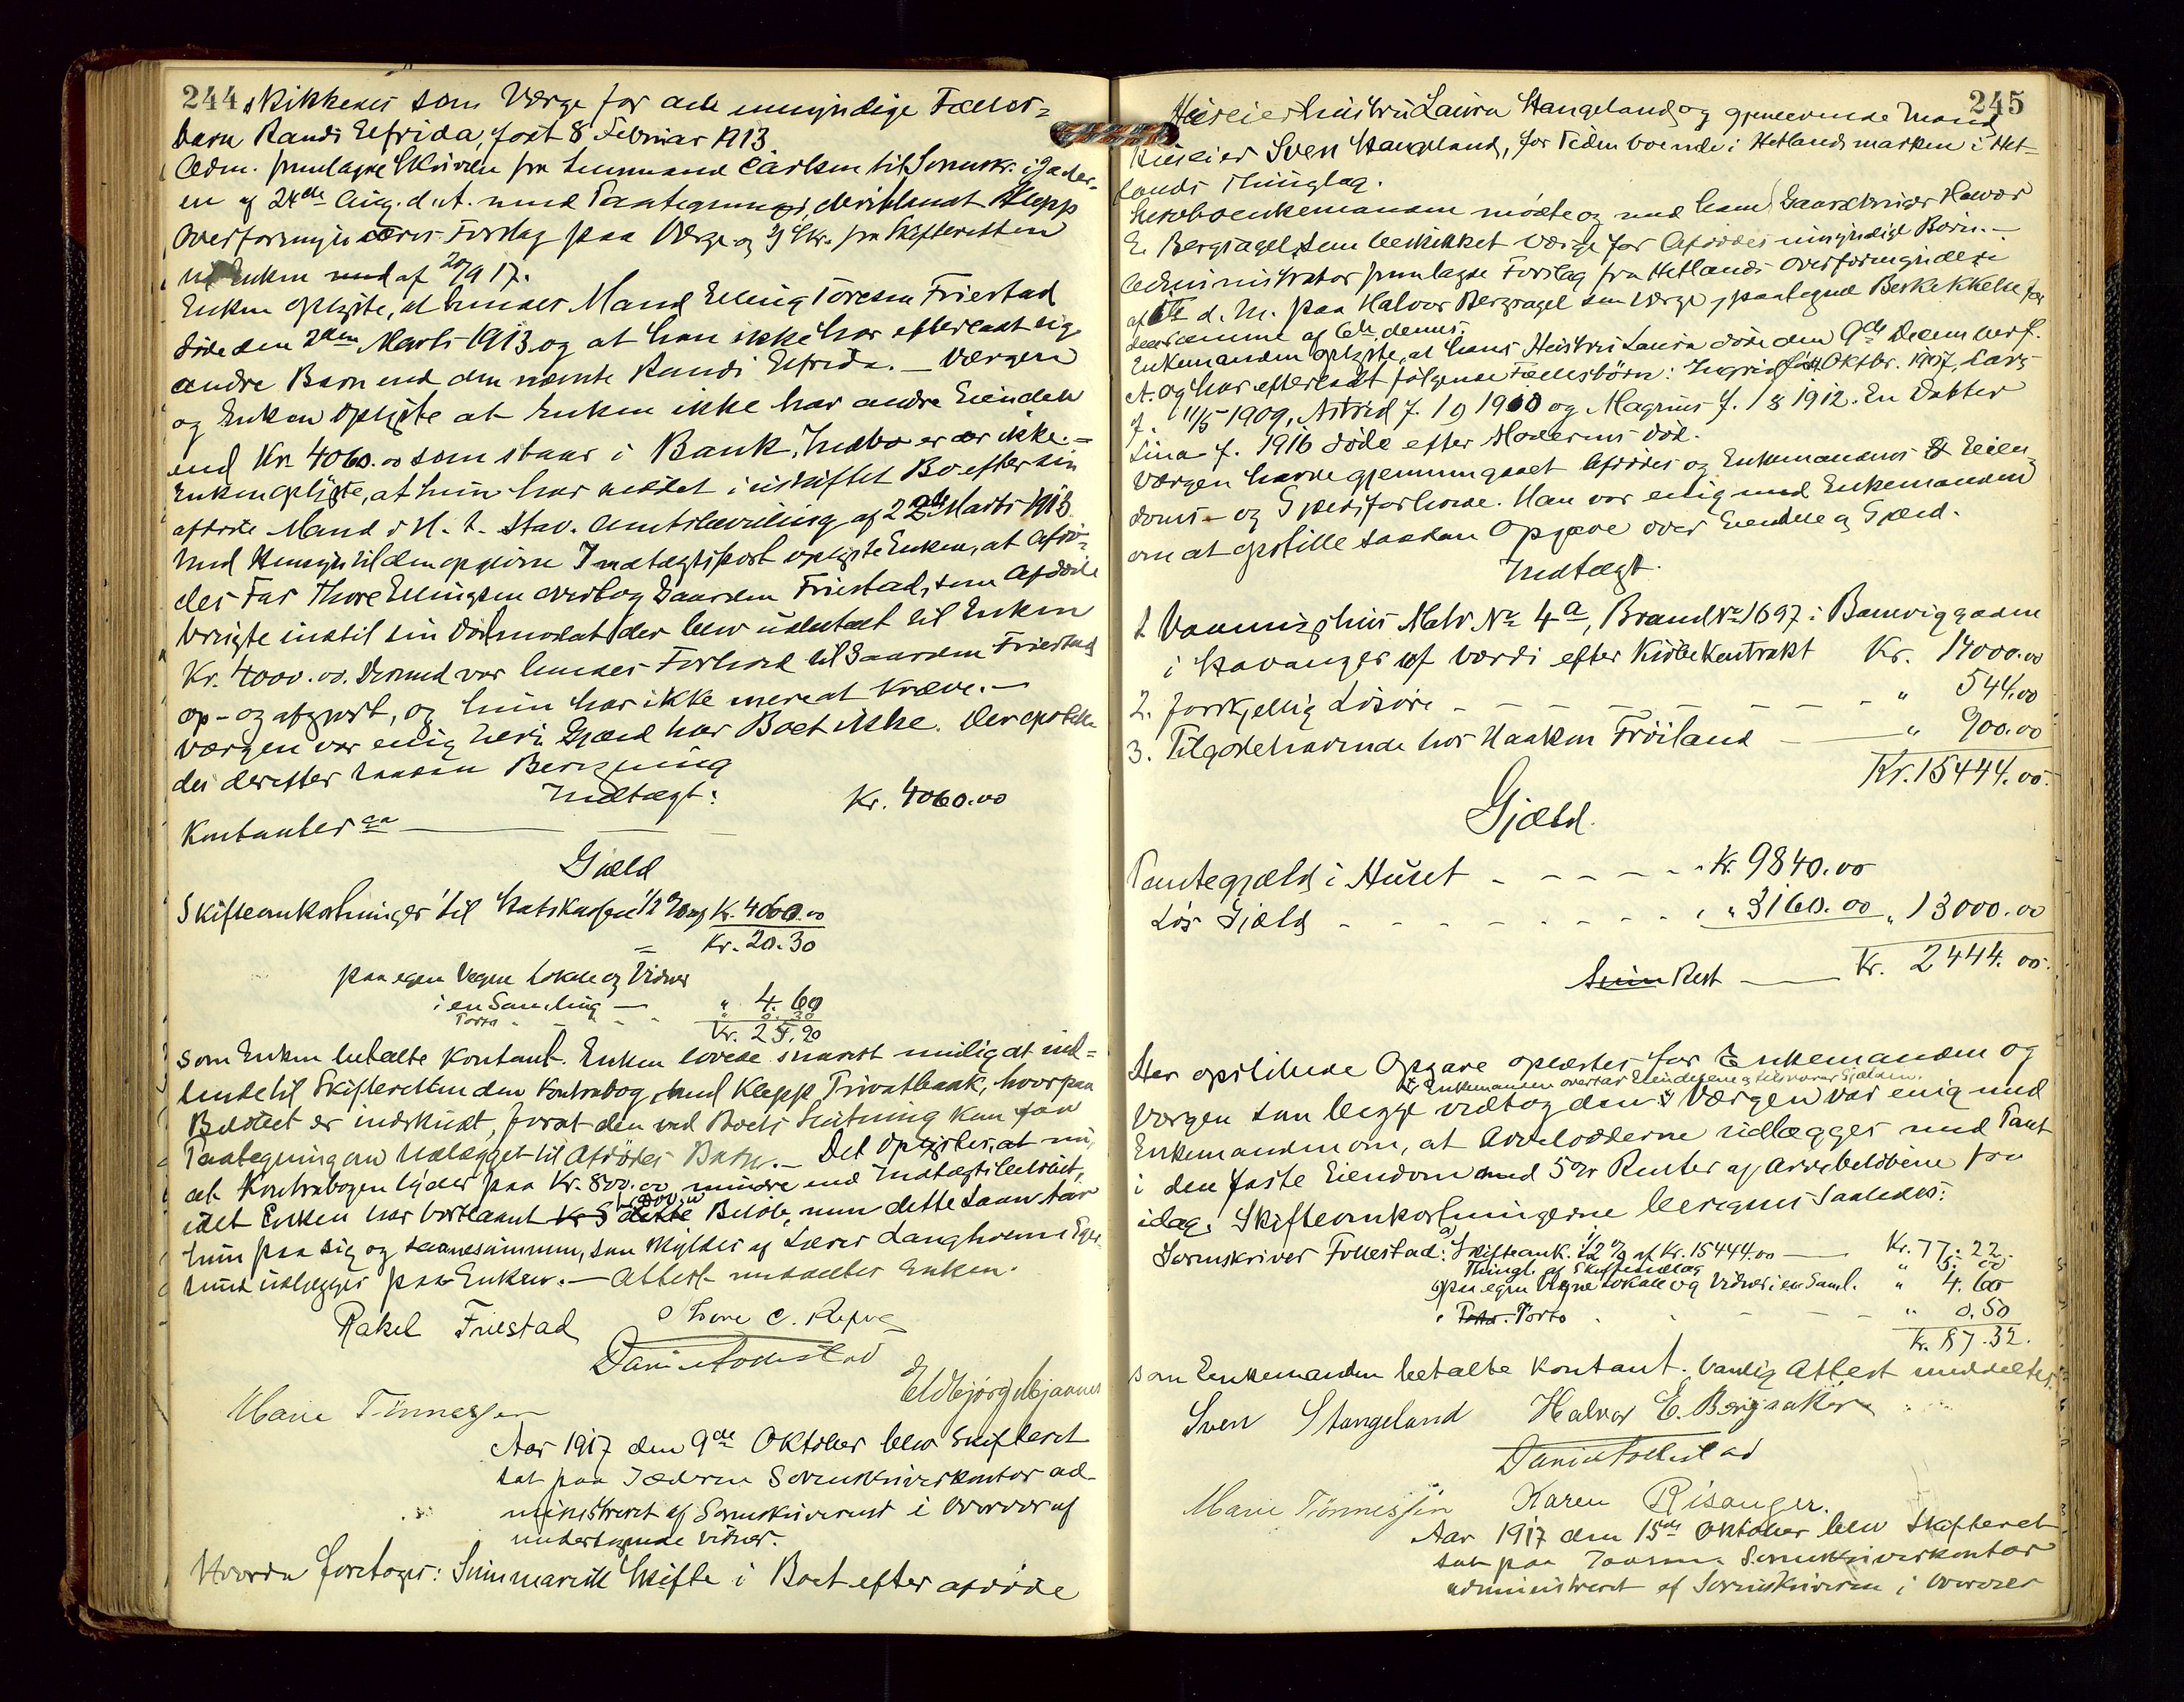 244
skikkedes som Værge for det umyndige Fælles-
barn Randi Elfrida, født 8 Februar 1913
Adm. fremlagde Skrivelse fra Lensmand Carlsen til Sorenskr. i Jæder-
en af 24de Aug. d. A. med Paategning, deriblandt Klepp
Overformynderies Forslag paa Værge og Skr. fra Skifteretten
til Enken af 20/9 17.
Enken oplyste, at hendes Mand Elling Toresen Friestad
døde den 2den Marts 1913 og at han ikke har efterladt sig
andre Barn end den nævnte Randi Elfrida. — Værgen
og Enken oplyste at Enken ikke har andre Eiendele
end Kr. 4060.00 som staar i Bank. Indbo er der ikke. —
Enken oplyste, at hun har siddet i uskiftet Bo efter sin
afdøde Mand i H. t. Stav. Amts bevilling af 22de Marts 1913.
Med Hensyn til den opgivne Indtægtspost oplyste Enken, at Afdø-
des Far Thore Ellingsen overtog Gaarden Friestad, som Afdøde
brugte indtil sin Død mod at der blev udbetalt til Enken
Kr. 4000.00. Dermed var hendes Forhold til Gaarden Friestad
op- og afgjort, og hun har ikke mere at kræve. —
Værgen var enig heri. Gjæld har Boet ikke. Der opstille-
des derefter saadan Beregning
Indtægt:
Kontanter — Kr. 4060.00
Gjæld
Skifteomkostninger til Statskassen 1/2 % af Kr. 4060.00
= Kr. 20.30
paa egne Vegne Lokale og Vidner
i en Samling — " 4.60
Porto - - - " 0.30
Kr. 25.20
som Enken betalte kontant. Enken lovede snarest mulig at ind-
sende til Skifteretten den Kontrabog med Klepp Privatbank, hvorpaa
Beløbet er indskudt, forat den ved Boets Slutning kan faa
Paategning om Udlægget til Afdødes Barn. — Det oplystes, at nu,
at Kontrabogen lyder paa Kr. 800.00 mindre end Indtægtsbeløbet,
idet Enken har bortlaant dette Beløb, men dette Laan tar
hun paa sig og saanesummen, som skyldes af Lærer Langholm i Eger-
sund udlægges paa Enken. — Attest meddeltes Enken.
Rakel Friestad Thore E. Repve
Daniel Follestad
Eldbjørg Mjaanes
Marie Tønnessen
Aar 1917 den 9de Oktober blev Skifteret
sat paa Jæderen Sorenskriverkontor ad-
ministreret af Sorenskriveren i Overvær af
undertegnede Vidner.
Hvorda foretoges: Summarisk Skifte i Boet efter afdøde
245
Huseierhustru Laura Stangeland og gjenlevende Mand
Huseier Sven Stangeland, for Tiden boende i Hetlandsmarken i Het-
lands Thinglag.
Enkemanden mødte og med ham Gaardbruger Halvor
E. Bergsagel, som beskikket Værge for Afdødes umyndige Børn. —
Administrator fremlagde Forslag fra Hetlands Overformynderi
af d. M. paa Halvor Bergsagel som Værge, paategnet Beskikkelse for
densamme af 6te dennes.
Enkemanden oplyste, at hans Hustru Laura døde den 9de Decem ber f.
A. og har efterladt følgende Fællesbørn: Ingrid født Oktbr. 1907, Lars
f. 11/5 1909, Astrid f. 1/9 1910 og Magnus f. 1/8 1912. En Datter
Lina f. 1916 døde efter Moderens Død.
Værgen havde gjennemgaaet Afdødes og Enkemandens Eien-
doms- og Gjældsforhold. Han var enig med Enkemanden
om at opstille saadan Opgave over Eiendele og Gjæld.
Indtægt.
1 Vaaningshus Matr. No 4a, Brand No 1697 i Banevigagaden
i Stavanger af Værdi efter Kjøbekontrakt Kr. 14000.00
2. Forskjellig Løsøre - - - - - - " 544.00
3. Tilgodehavende hos Haakon Frøiland — " 900.00
Kr. 15444.00
Gjæld.
Pantegjæld i Huset - - - - - Kr. 9840.00
Løs Gjæld - - - - - - " 3160.00 " 13000.00
Sum Rest — Kr. 2444.00
Den opstillede Opgave oplæstes for Enkemanden og
Enkemanden overtar Eiendelene og tilsvarer Gjælden.
Værgen som begge vedtog den. Værgen var enig med
Enkemanden om, at Arvelodderne udlægges med Pant
i den faste Eiendom med 5% Renter af Arvebeløbene fra
idag. Skifteomkostningerne beregnes saaledes:
Sorenskriver Follestad: a) Skifteomk. 1/2 % af Kr. 15444.00 — Kr. 77.22
Thingl. af Skifteudlæg " 5.00
paa egne Vegne Lokale og Vidner i en Saml. " 4.60
Porto. Porto - - " 0.50
Kr. 87.32.
som Enkemanden betalte kontant. Vanlig Attest meddeltes.
Sven Stangeland Halvor E. Bergsaker
Daniel Follestad
Marie Tønnessen Karen Risanger.
Aar 1917 den 15de Oktober blev Skifteret
sat paa Jæderen Sorenskriverkontor
administreret af Sorenskriveren i Overvær